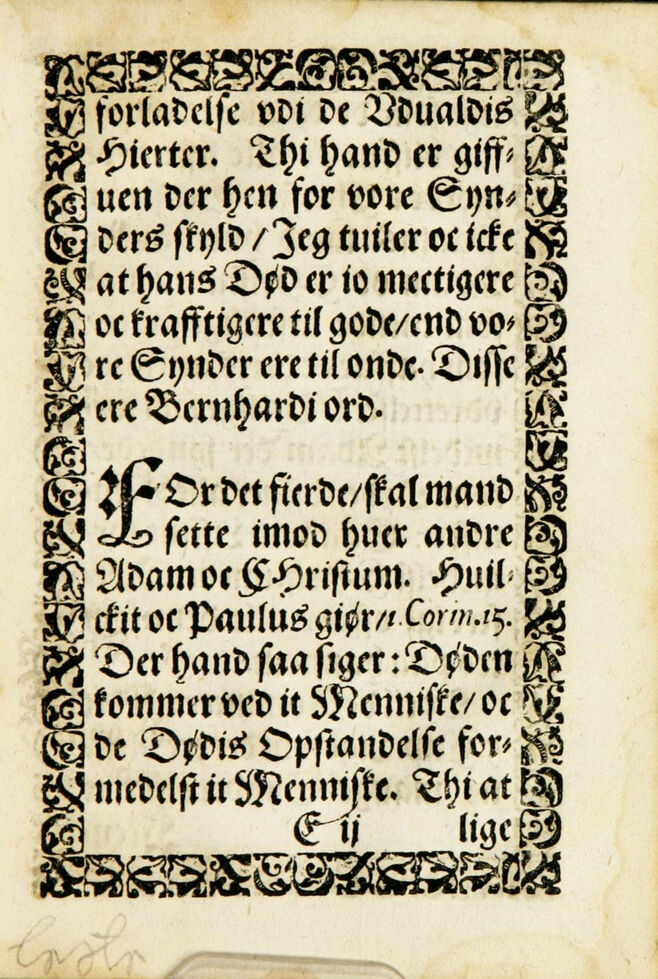 forladelse vdi de Vdualdis
Hierter. Thi hand er giff⸗
uen der hen for vore Syn⸗
ders skyld / Jeg tuiler oc icke
at hans Død er io mectigere
oc krafftigere til gode/end vo⸗
re Synder ere til onde. Disse
ere Bernhardi ord.
FOr det fierde/skal mand
sette imod huer andre
Adam oc CHristum. Huil⸗
ckit oc Paulus giør/1. Corin.15.
Der hand saa siger: Døden
kommer ved it Menniske/ oc
de Dødis Opstandelse for⸗
medelst it Menniske. Thi at
E ij lige